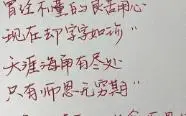 曾经不懂的良苦用心
现在却字字如珍"
"天涯海角有尽处
只有师恩无穷期"